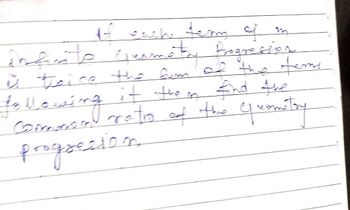 If each term of an
infinite geometry Progression
is twice the sum of the terms
following it then find the
common ratio of the geometry
progression.